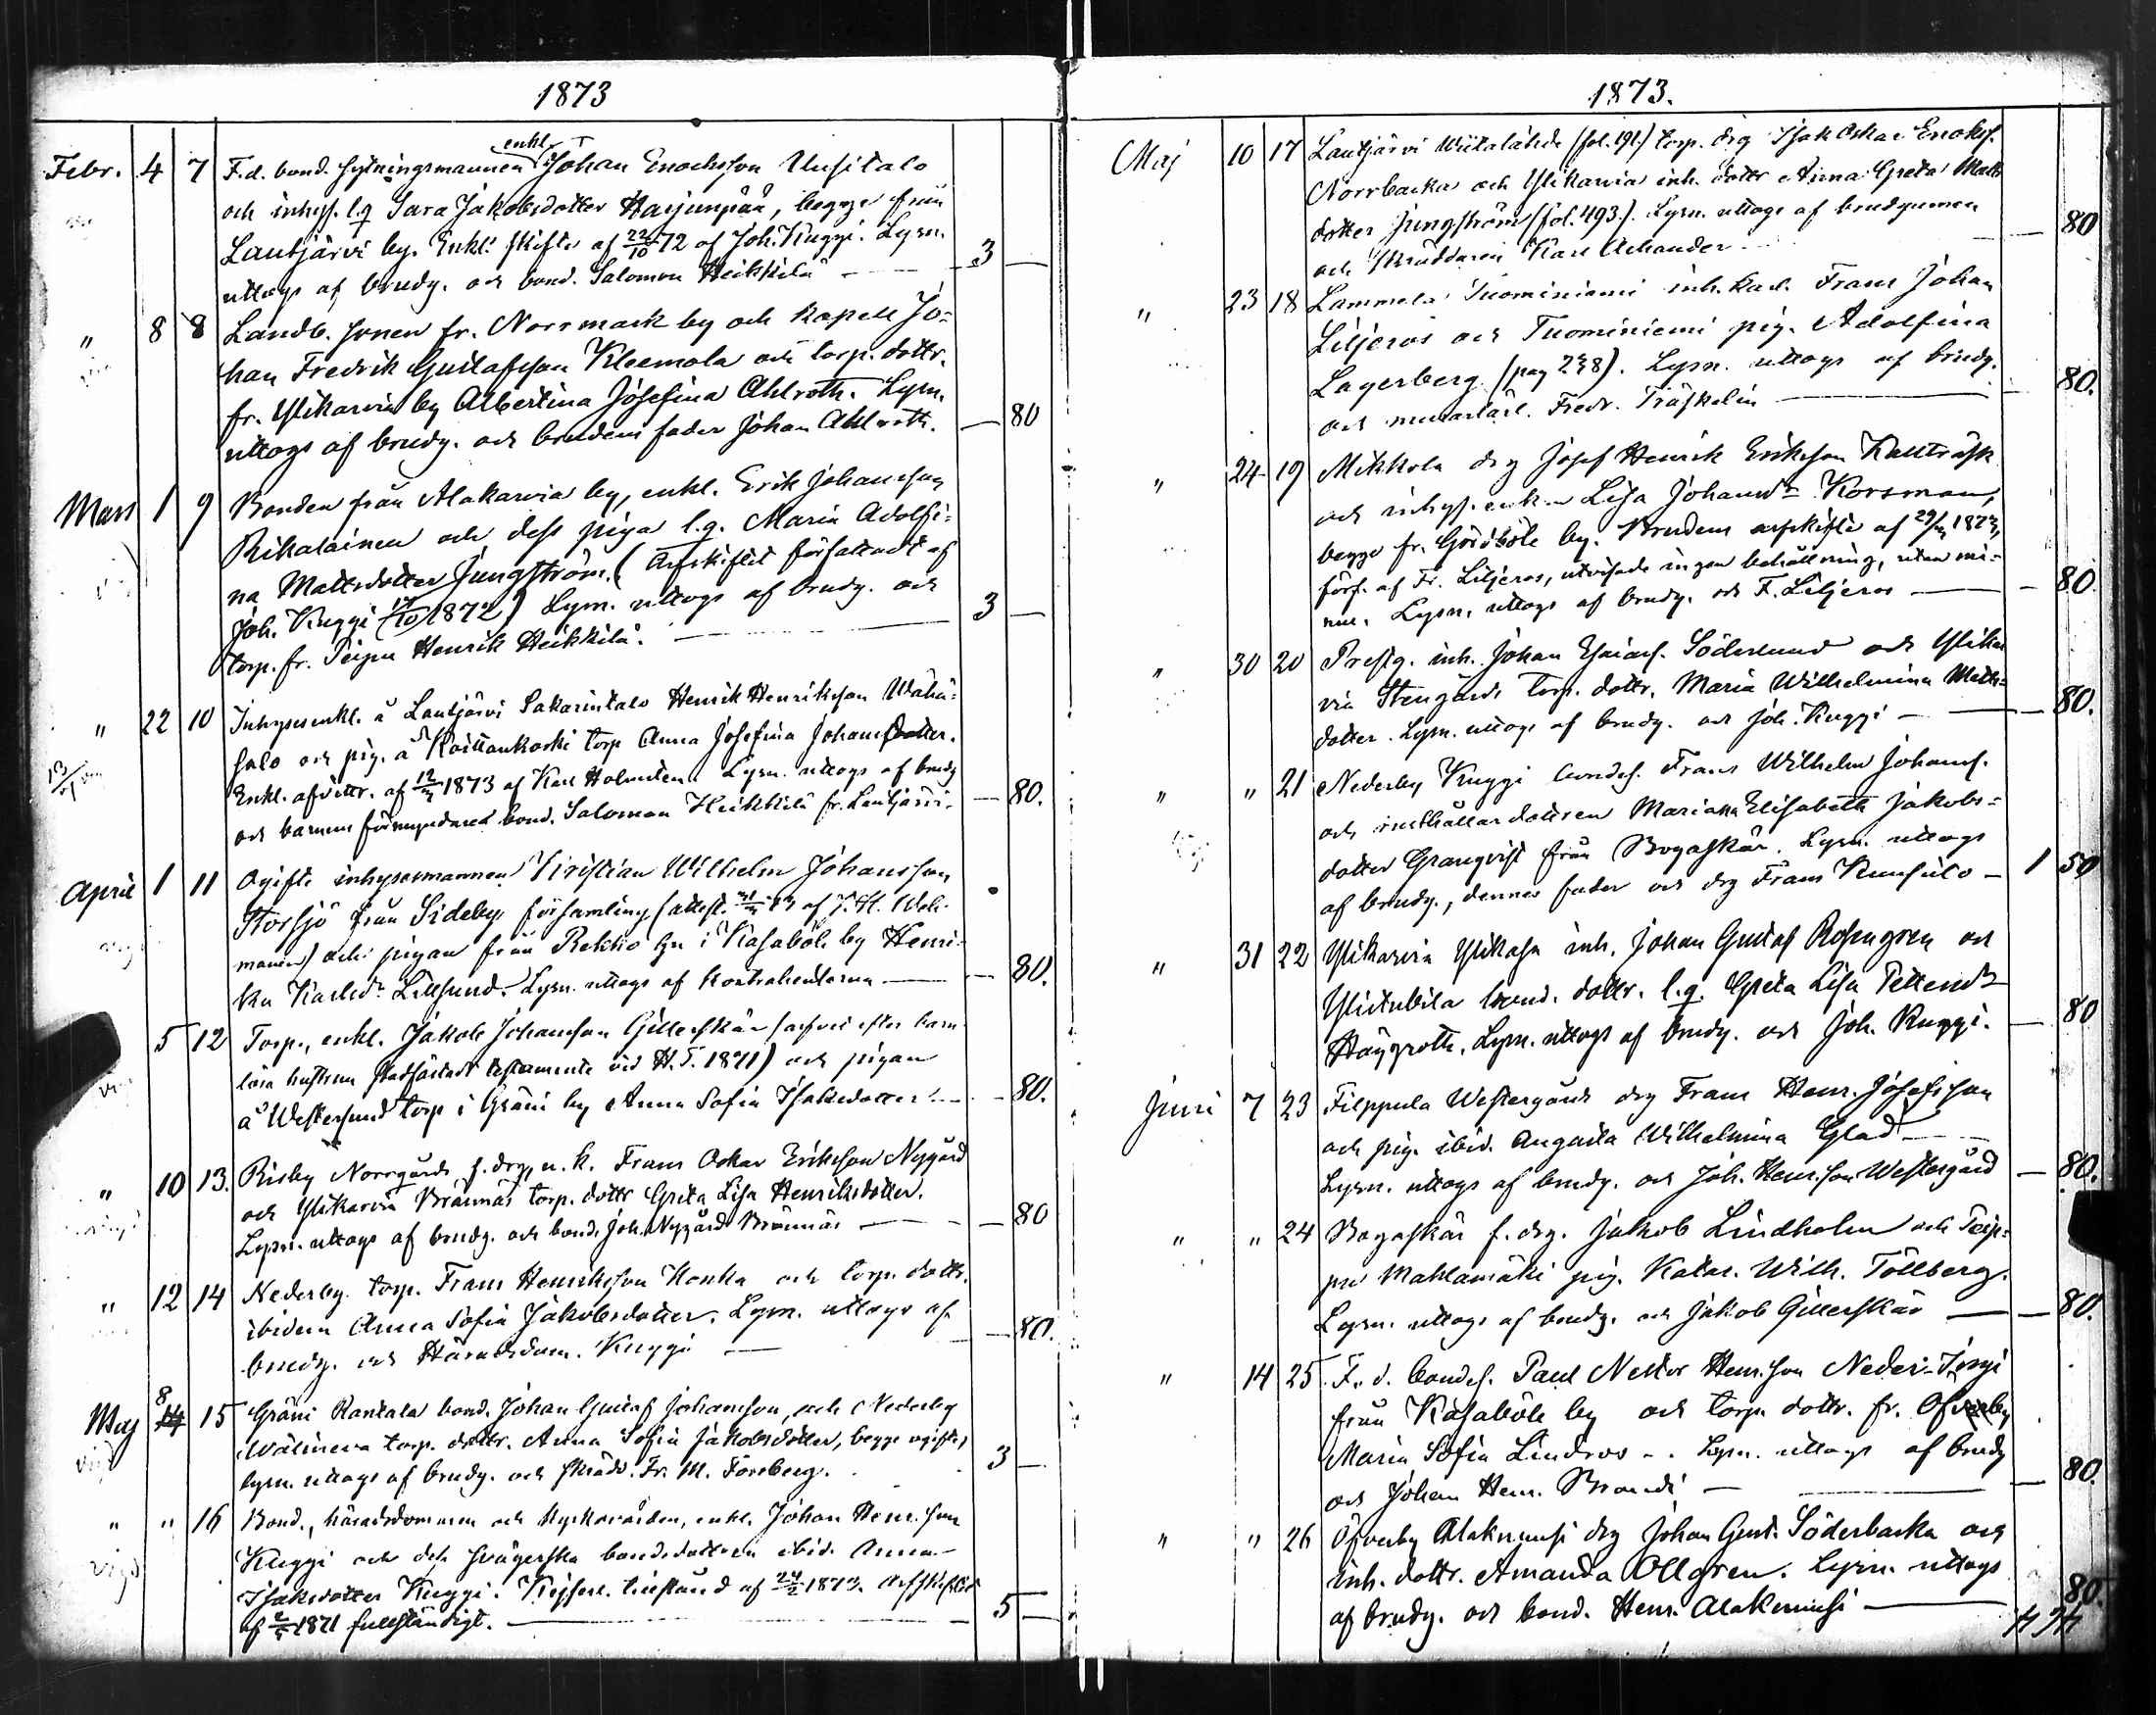 1873
Febr. 4 7 F.d. bond. sytningsmannen enkl. Johan Enochsson Uusitalo
och inhys. l.q Sara Jakobsdotter Harjunpää, begge från
Lautjärvi by. Enkl. skifte af 22/10 72 af Joh. Kuggi. Lysn.
uttogs af brudg. och bond. Salomon Heikkilä — 3 —
" 8 8 Landb. sonen fr. Norrmark by och kapell Jo-
han Fredrik Gustafsson Kleemola och torp. dottr.
fr. Ylikarvia by Albertina Josefina Ahlroth. Lysn.
uttogs af brudg. och brudens fader Johan Ahlroth. — 80
Mars 1 9 Bonden från Alakarvia by, enkl. Erik Johansson
Rikalainen och dess piga l.q. Maria Adolfi-
na Mattsdotter Jungström. (Arfskiftet författadt af
Joh. Kuggi 1872) Lysn. uttogs af brudg. och
torp. fr. Peipu Henrik Heikkilä. — 3 —
" 22 10 Inhysesenkl. å Lautjärvi Sakarintalo Henrik Henriksson Wähä-
salo och pig. å Koittankoski torp Anna Josefina Johansdotter.
Enkl. afvittr. af 1873 af Karl Holmsten. Lysn. uttogs af brudg
och barnens förmyndare bond. Salomon Heikkilä fr. Lautjärvi. — 80.
April 1 11 Ogifte inhysesmannen Kristian Wilhelm Johansson
Storsjö från Sideby församling (attest. af J. H. Wel-
) och pigan från Rekko hn i Kasaböle by Henri-
ka Karlsdr Lillsund. Lysn. uttogs af kontrahenterna — 80.
5 12 Torp., enkl. Jakob Johansson Gillerskär (arfvei efter barn-
lösa hustrun stadfästadt testamente vid H.T. 1871) och pigan
å Westersund torp i Gräni by Anna Sofia Isaksdotter — 80.
" 10 13. Risby Norrgårds f. drg, u. k. Frans Oskar Eriksson Nygård
och Ylikarvia Brännäs torp. dottr Greta Lisa Henriksdotter.
Lysn. uttogs af brudg. och bond. Joh. Nygård Brännäs — 80
" 12 14 Nederby torp. Frans Henriksson Konka och torp. dottr.
ibidem Anna Sofia Jakobsdotter. Lysn. uttogs af
brudg. och Häradsdom. Kuggi — 80.
Maj 8 15 Gräni Rantala bond. Johan Gustaf Johansson, och Nederby
torp. dottr. Anna Sofia Jakobsdotter, begge ogifte,
lysn. uttogs af brudg. och skrädd. Fr. M. Forsberg. 3 —
" " 16 Bond., häradsdomaren och kyrkovärden, enkl. Johan Henr.son
Kuggi och dess svägerska bondedottren ibid. Anna
Isaksdotter Kuggi. Kejserl. tillstånd af 1873. Arfskiftet
af 1871 fullständigt. — 5 —
1873.
Maj 10 17 Lautjärvi Wiitalähde (fol. 191.) torp. drg Isak Oskar Enokss.
Norrbacka och Ylikarvia inh. dottr Anna Greta Matts
dotter Jungström (fol. 493.). Lysn. uttogs af brudgumen
och skräddaren Karl Achander — 80
" 23 18 Lammela Tuominiemi inh. karl. Frans Johan
Liljeros och Tuominiemi pig. Adolfina
Lagerberg (pag 238). Lysn. uttogs af brudg.
och murarlärl. Fredr. Träskelin — 80.
" 24 19 Mikkola drg Josef Henrik Eriksson Kallträsk
och inhys. enkan Lisa Johansdr Korsman,
begge fr. Göriböle by. Brudens arfskifte af
förf. af Fr. Liljeros, utvisade ingen behållning, utan mi-
nus. Lysn. uttogs af brudg. och F. Liljeros — 80.
" 30 20 Prestg. inh. Johan Esaiass. Söderlund och Ylikar
via Stengårds torp. dottr. Maria Wilhelmina Matts-
dotter. Lysn. uttogs af brudg. och Joh. Kuggi — 80.
" " 21 Nederby Kuggi bondes. Frans Wilhelm Johanss.
och rusthållardottren Mariana Elisabeth Jakobs-
dotter Granqvist från Bogaskär. Lysn. uttogs
af brudg., dennes fader och drg Frans Kunsilo — 1 50
" 31 22 Ylikarvia Ylikasa inh. Johan Gustaf Rosengren och
Ylitubila bond. dottr. l.q. Greta Lisa Pettersdr
Häggroth. Lysn. uttogs af brudg. och Joh. Kuggi. — 80
Juni 7 23 Filppula Westergårds drg Frans Henr. Josefsson
och pig. ibid. Augusta Wilhelmina Glad —
Lysn. uttogs af brudg. och Joh. Henr.son Westergård — 80.
" " 24 Bogaskär f. drg. Jakob Lindholm och Peip-
pu Mahlamäki pig. Katar. Wilh. Töllberg.
Lysn. uttogs af brudg. och Jakob Gillerskär — 80.
" 14 25 F. d. bondes. Paul Nestor Henr.son Neder-
från Kasaböle by och torp. dottr. fr. Ofverby
Maria Sofia Lindros. Lysn. uttogs af brudg
och Johan Henr. Brandi — 80.
" " 26 Öfverby Alakniusi drg Johan Gust. Söderbacka och
inh. dottr. Amanda Ollgren. Lysn. uttogs
af brudg. och bond. Henr. Alakniusi — 80.